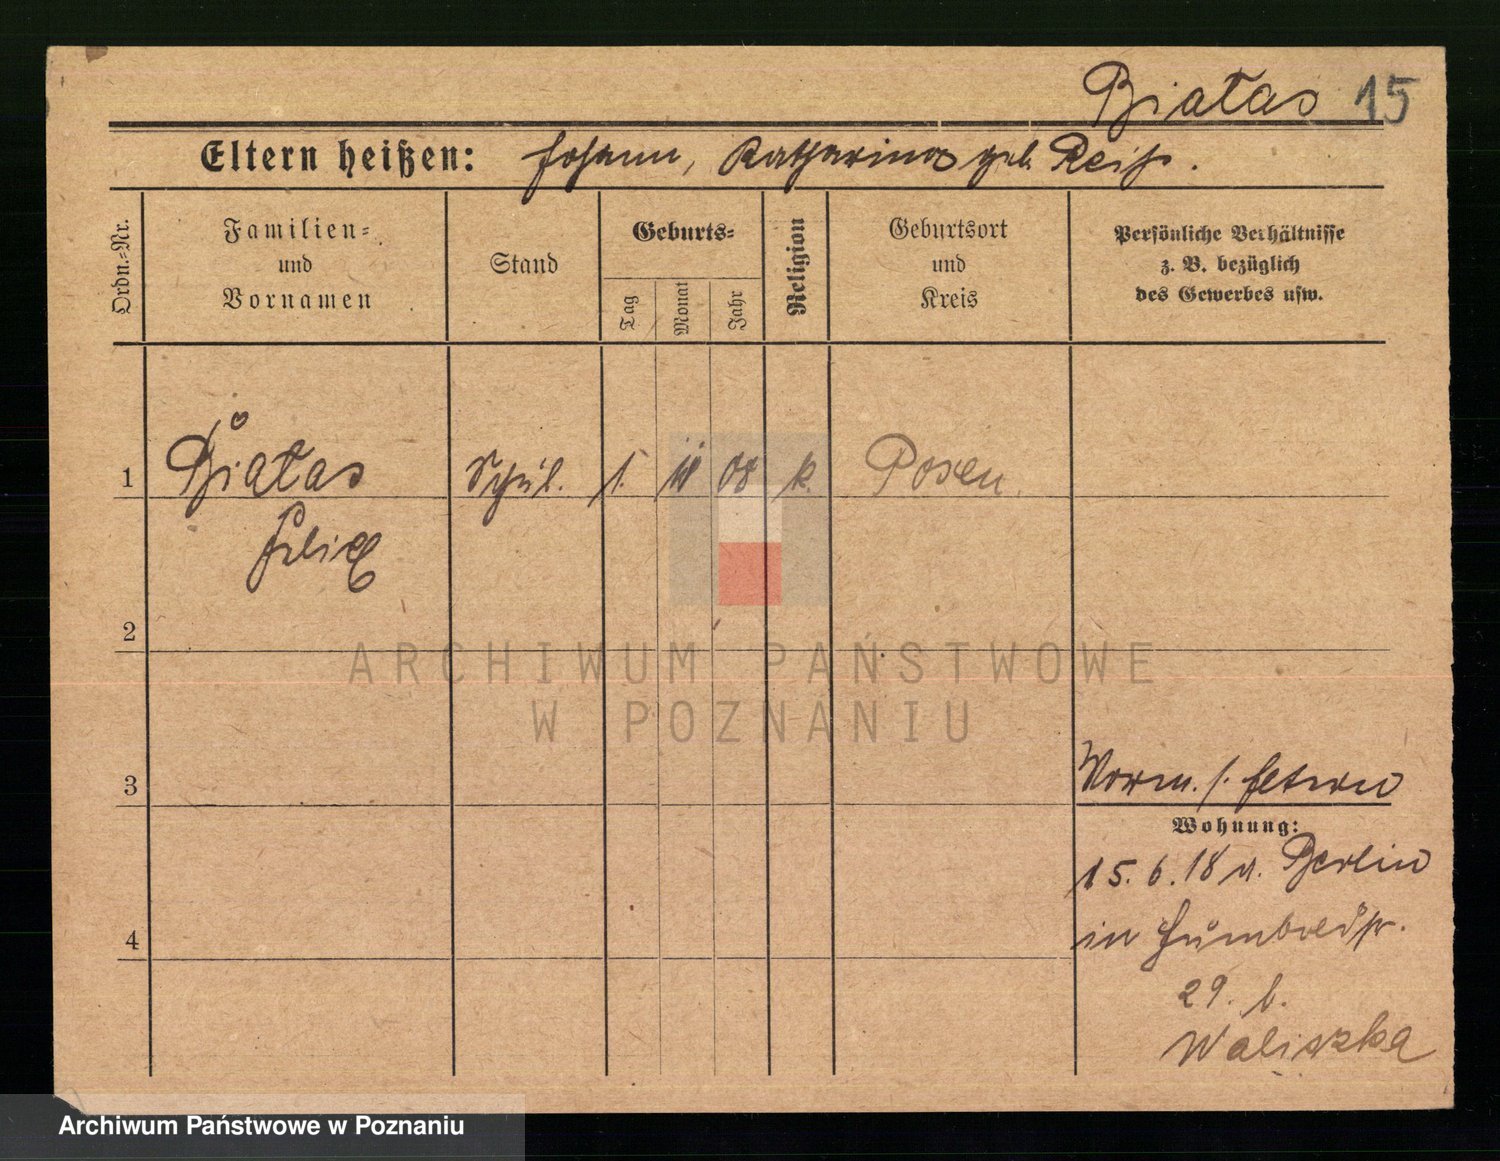 Białas 15
Eltern heißen: Johann, Katharina geb. Reiß.
Ordn.-Nr.
Familien-
und
Vornamen
Stand
Geburts-
Tag
Monat
Jahr
Religion
Geburtsort
und
Kreis
Persönliche Verhältnisse
z. B. bezüglich
des Gewerbes usw.
1 Białas Schül. 1. 08 k. Posen.
Felix
2
ARCHIWUM PAŃSTWOWE
W POZNANIU
3
Wohnung:
15.6.18 v. Berlin
4 in
29. b.
Waliszka
Archiwum Państwowe w Poznaniu